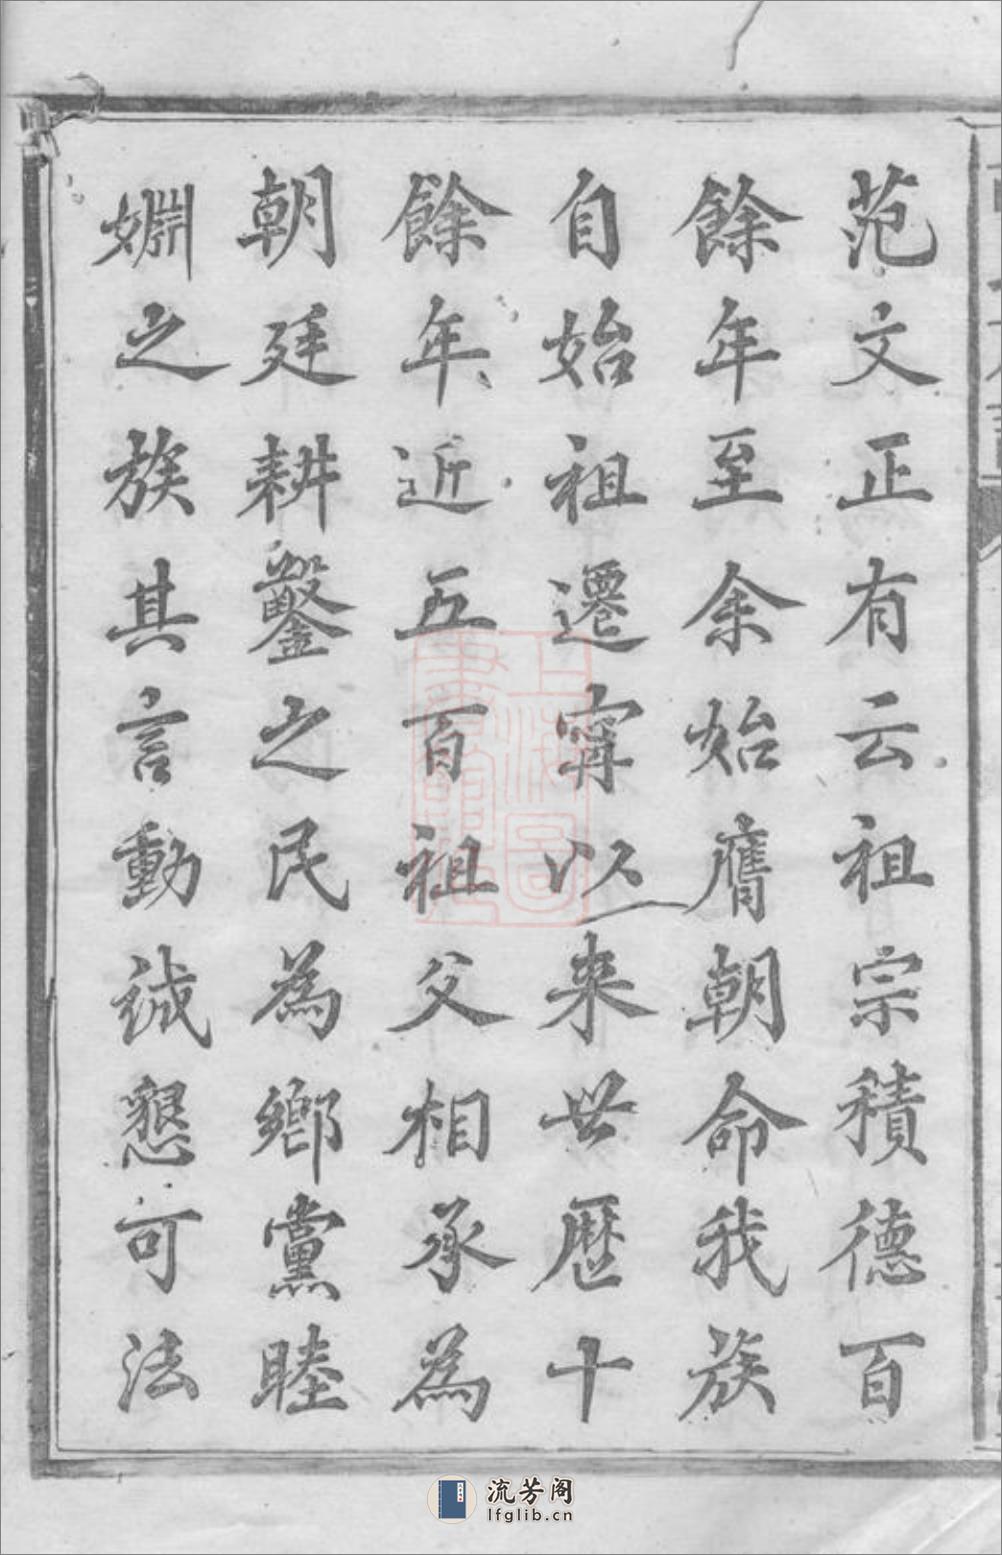 范文正有云祖宗積德百
餘年至余始膺朝命我族
自始祖遷甯以來世歷十
餘年近五百祖父相承為
朝廷耕鑿之民為鄉黨睦
婣之族其言動誠懇可法
流芳阁
lfglib.cn